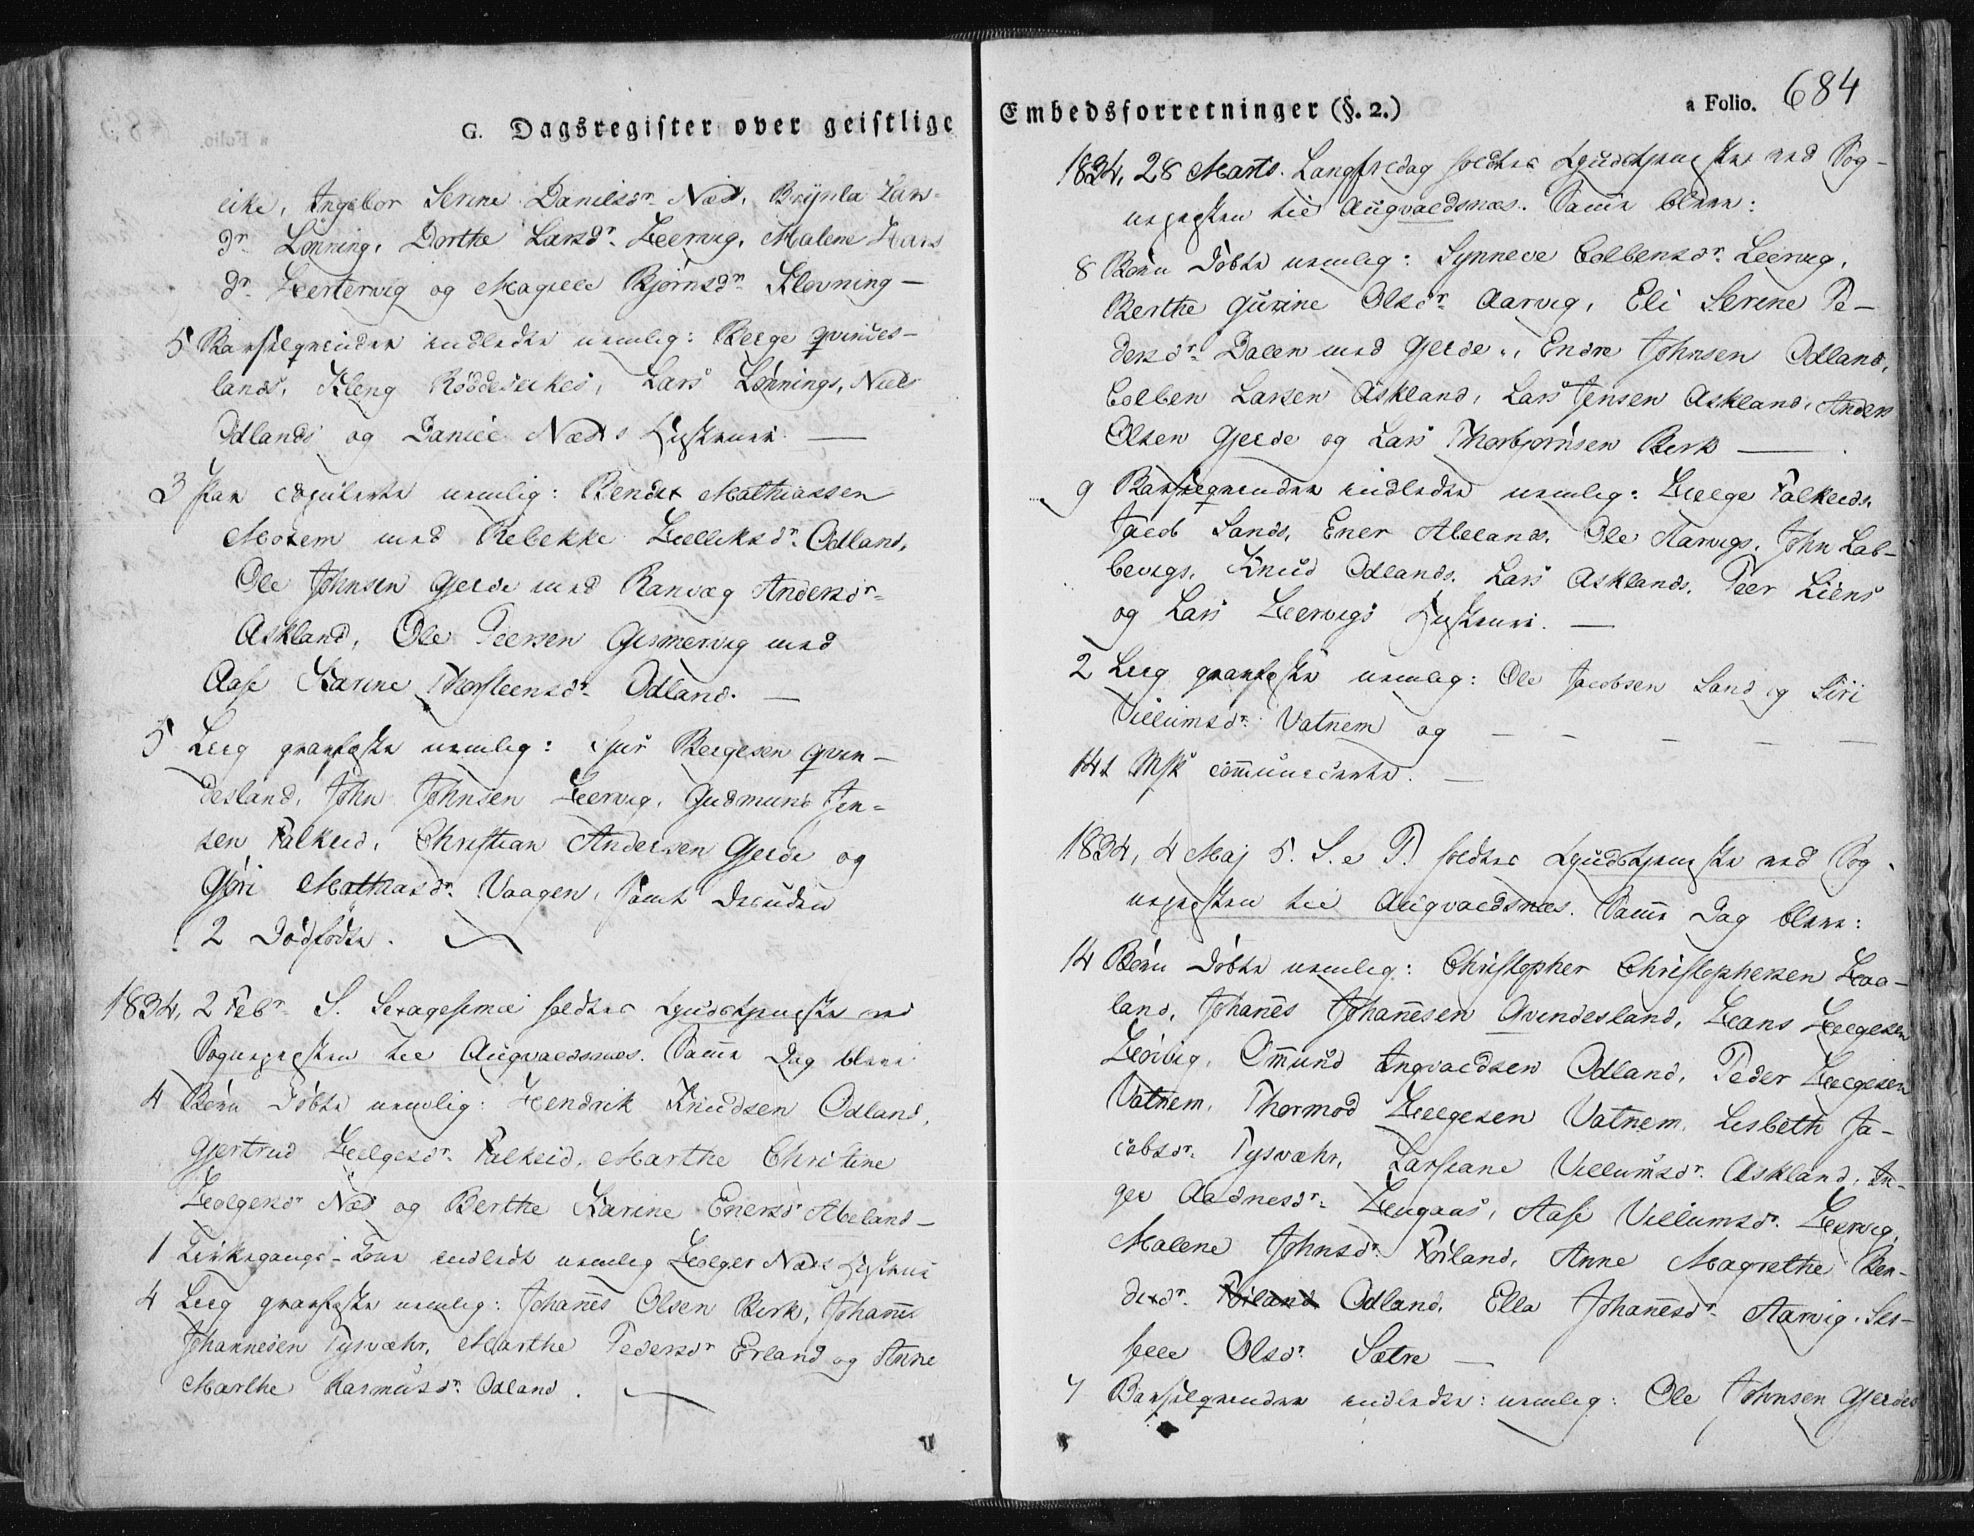 G. Dagsregister over geistlige
eike, Ingebor Serine Danielsdr. Næs, Brynla Lar-
dr. Lønning, Dorthe Larsdr. Heervig, Malene Hans
dr. Hertervig og Magele Bjørnsdr. Klovning —
5 Barselqvinder indledte nemlig: Berge qvindes-
lands, Kleng Røddeseikes, Lars Lønnings, Niels
Odlands og Daniel Næs's Hustruer. —
3 Par copulerte nemlig: Bendix Mathiassen
Mosem med Rebekke Helliksdr. Odland,
Ole Johnsen Gjerde med Ranvæg Andersdr.
Askland, Ole Peersen Gismervig med
Aase Karine Thorsteensdr. Odland. —
5 Liig jordfæstede nemlig: Siur Bergesen qvin-
desland, John Johnsen Heervig, Gudmund Jen-
sen Falkeid, Christian Andersen Gjerde og
Gjøri Mathiasdr. Vaagen, samt desuden
2 Dødfødte.
1834, 2 Febr. S. Sexagesimæ holdtes Gudstjeneste ved
Sognepresten til Augvaldsnæs. Samme Dag bleve
4 Børn Døbte nemlig: Hendrik Knudsen Odland,
Gjertrud Helgesdr. Falkeid, Marthe Christine
Holgersdr. Næs og Berthe Karine Enersdr. Abeland —
1 Kirkegangs-Kone indledt nemlig Holger Næs's Hustrue
4 Liig jordfæstede nemlig: Johanes Olsen Birk, Johanes
Johannesen Tysvæhr, Marthe Pedersdr. Erland og Anne
Marthe Rasmusdr. Odland.
Embedsforretninger (§. 2.)
a Folio. 684
1834, 28 Marts. Langfredag holdtes Gudstjeneste ved Sog-
nepresten til Augvaldsnæs. Samme bleve:
8 Børn Døbte nemlig: Synneve Colbensdr. Leervig,
Berthe Gurine Olsdr. Aarvig, Eli Serine Pe-
dersdr. Dalen med Gjerde, Endre Johnsen Odland,
Colben Larsen Askland, Lars Jensen Askland, Anders
Olsen Gjerde og Lars Thorbjørnsen Birk —
9 Barselqvinder indledte nemlig: Helge Falkeids,
Jacob Sands, Ener Abelands, Ole Aarvigs, John Lab-
bevigs, Knud Odlands, Lars Asklands, Peer Liens
og Lars Heervigs Hustruer. —
2 Liig jordfæstede nemlig: Ole Jacobsen Sand og Siri
Villumsdr. Vatnem og — — — — —
141 Msk communicerte. —
1834, 4 Maj 5. S. e P. holdtes Gudstjeneste ved Sog-
nepresten til Augvaldsnæs. Samme Dag bleve:
14 Børn Døbte nemlig: Christopher Christophersen Haa-
land, Johanes Johanesen Qvindesland, Hans Helgesen
Hervig, Omund Ingvaldsen Odland, Peder Helgesen
Vatnem, Thormod Helgesen Vatnem, Lisbeth Ja-
cobsdr. Tysvæhr, Larsiane Villumsdr. Askland, In-
ger Aadnesdr. Haugaas, Aase Villumsdr. Heervig,
Malene Johnsdr. Føiland, Anne Magrethe Ben-
dixdr. Føiland Odland, Ella Johanesdr. Aarvig, Ses-
sele Olsdr. Sætre —
7 Barselqvinder indledte: nemlig: Ole Johnsen Gjerdes